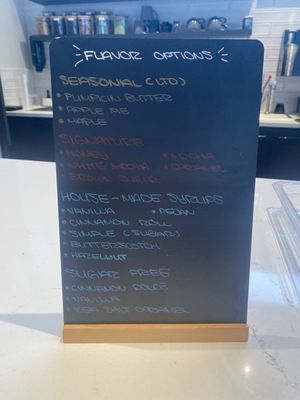 FLAVOR OPTIONS
SEASONAL (LTD)
• PUMPKIN BUTTER
• APPLE PIE
• MAPLE
SIGNATURE
• HONEY • MOCHA
• WHITE MOCHA • CARAMEL
• BROWN SUGAR
HOUSE-MADE SYRUPS
• VANILLA • PECAN
• CINNAMON ROLL
• SIMPLE (SUGAR)
• BUTTERSCOTCH
• HAZELNUT
SUGAR FREE
• CINNAMON DOLCE
• VANILLA
• SEA SALT CARAMEL